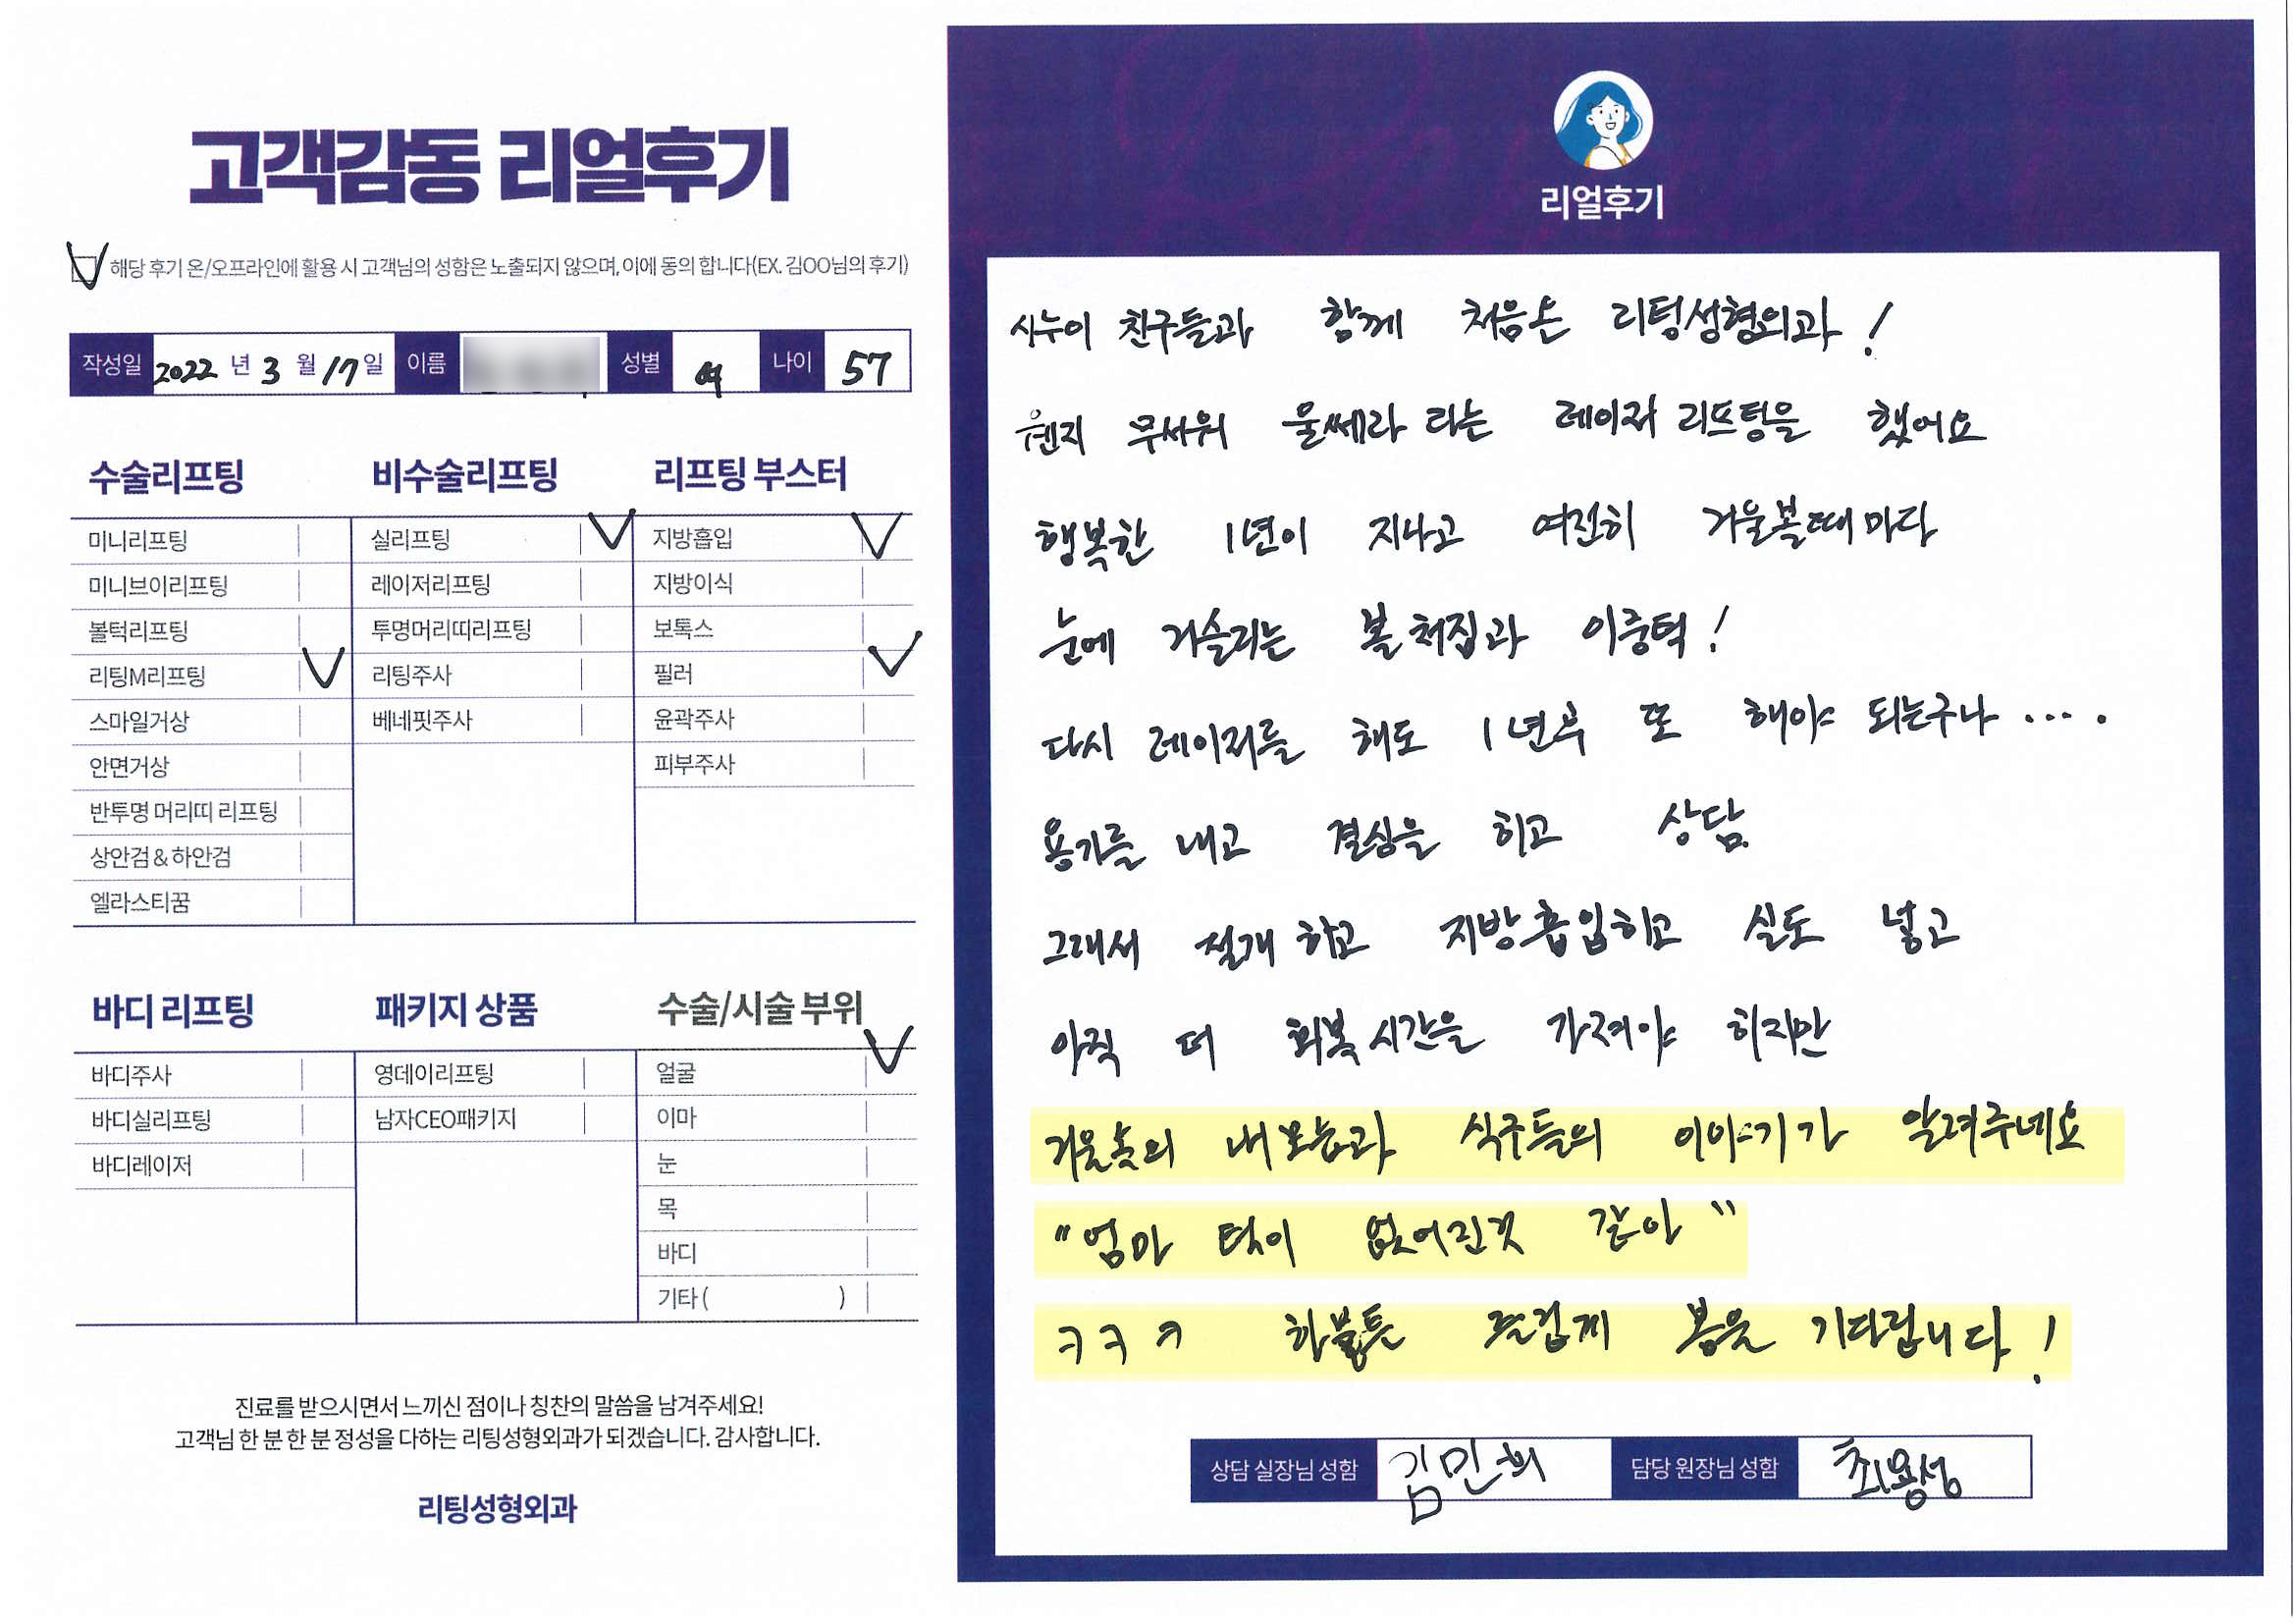 고객감동 리얼후기
해당 후기 온/오프라인에 활용 시 고객님의 성함은 노출되지 않으며, 이에 동의 합니다(EX. 김OO님의 후기)
작성일 2022 년 3 월 17 일 이름 성별 여 나이 57
수술리프팅
미니리프팅
미니브이리프팅
볼턱리프팅
리팅M리프팅
스마일거상
안면거상
반투명 머리띠 리프팅
상안검 & 하안검
엘라스티꿈
비수술리프팅
실리프팅
레이저리프팅
투명머리띠리프팅
리팅주사
베네핏주사
리프팅 부스터
지방흡입
지방이식
보톡스
필러
윤곽주사
피부주사
바디 리프팅
바디주사
바디실리프팅
바디레이저
패키지 상품
영데이리프팅
남자CEO패키지
수술/시술 부위
얼굴
이마
눈
목
바디
기타 ( )
진료를 받으시면서 느끼신 점이나 칭찬의 말씀을 남겨주세요!
고객님 한 분 한 분 정성을 다하는 리팅성형외과가 되겠습니다. 감사합니다.
리팅성형외과
리얼후기
시누이 친구들과 함께 처음온 리팅성형외과!
웬지 무서워 울쎄라 라는 레이저 리프팅을 했어요
행복한 1년이 지나고 여전히 거울볼때마다
눈에 거슬리는 볼처짐과 이중턱!
다시 레이저를 해도 1년후 또 해야 되는구나 ....
용기를 내고 결심을 하고 상담
그래서 절개하고 지방흡입하고 실도 넣고
아직 더 회복시간을 가져야 하지만
거울속의 내모습과 식구들의 이야기가 알려주네요
"엄마 턱이 없어진것 같아"
ㅋㅋㅋ 하불튼 즐겁게 봄을 기다립니다!
상담 실장님 성함 김민희 담당 원장님 성함 최용성